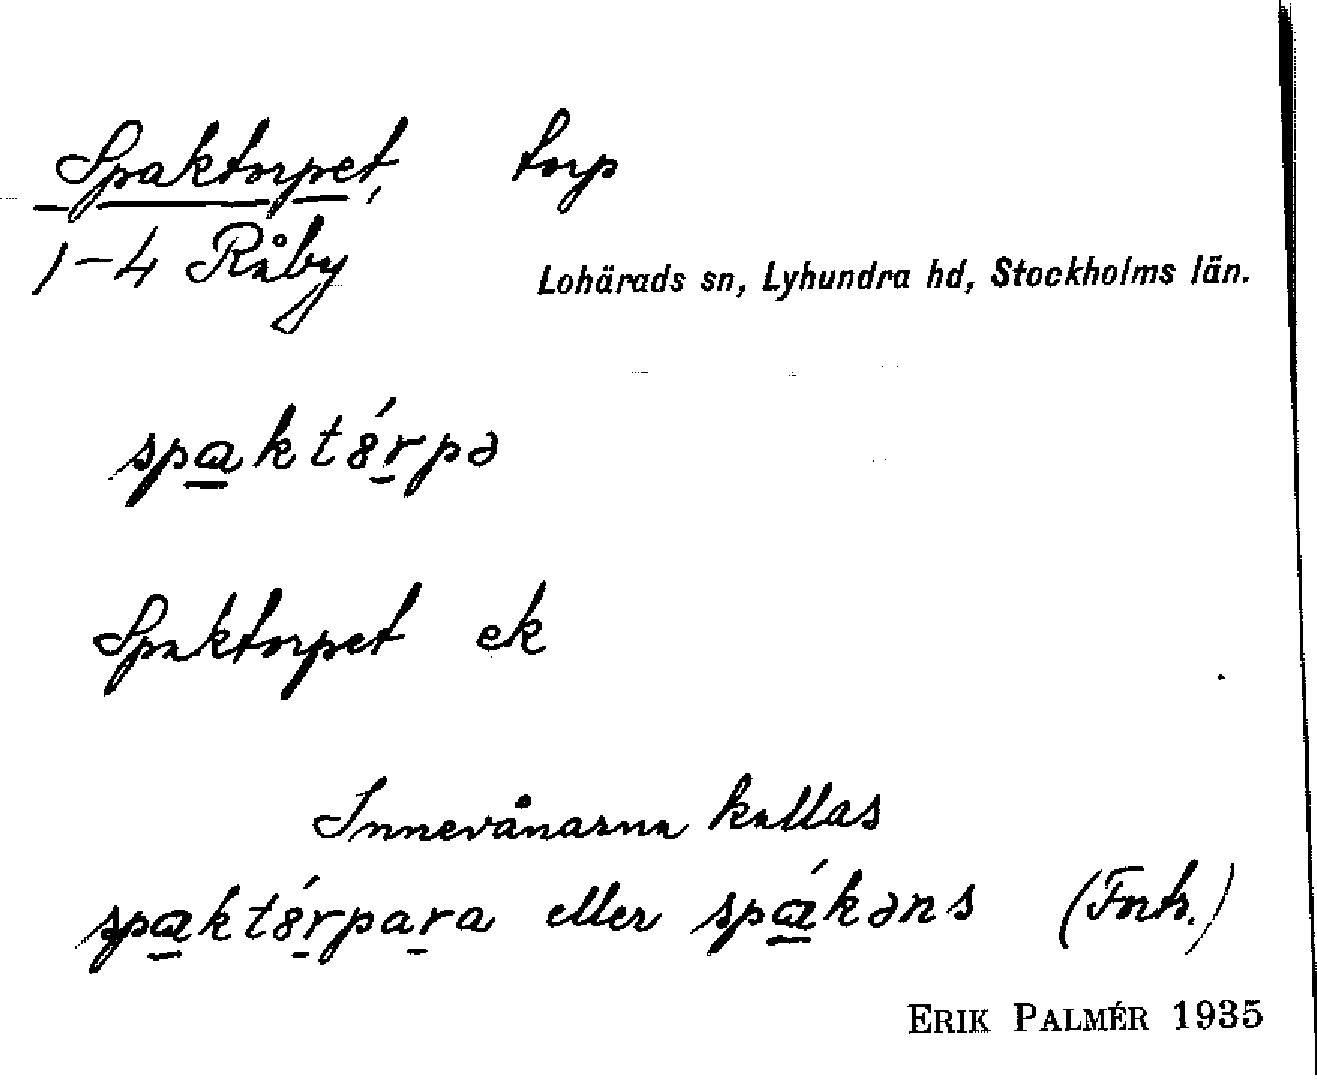 Spaktorpet, torp
1-4 Råby
Lohärads sn, Lyhundra hd, Stockholms län.
spakt8́rpə
Spaktorpet ek
Innevånarna kallas
spakt8́rpara eller spákəns (Fnh.)
ERIK PALMÉR 1935